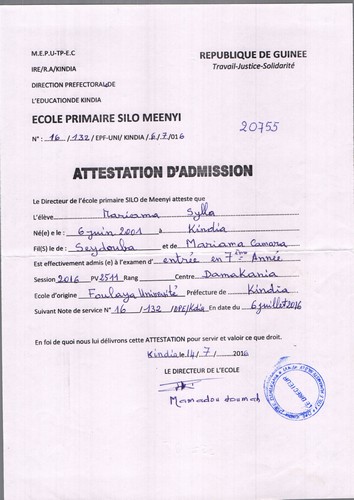 M.E.P.U-TP-E.C
REPUBLIQUE DE GUINEE
Travail-Justice-Solidarité
IRE/R.A/KINDIA
DIRECTION PREFECTORALDE
L'EDUCATIONDE KINDIA
ECOLE PRIMAIRE SILO MEENYI
N° : 16 /132/ EPF-UNI/ KINDIA /6/7/016
20755
ATTESTATION D'ADMISSION
Le Directeur de l'école primaire SILO de Meenyi atteste que
L'élève Mariama Sylla
Né(e) le : 6 juin 2001 à Kindia
Fil(S) le de : Seydouba et de Mariama Camara
Est effectivement admis (e) à l'examen d' entrée en 7ème Année
Session 2016 PV 2511 Rang Centre Damakania
Ecole d'origine Foulaya Université Préfecture de Kindia
Suivant Note de service N° 16 /132 /DPE/Kdia En date du 6 juillet 2016
En foi de quoi nous lui délivrons cette ATTESTATION pour servir et valoir ce que droit.
Kindia le 14/ 7 / 2016
LE DIRECTEUR DE L'ECOLE
Mamadou
LE DIRECTEUR